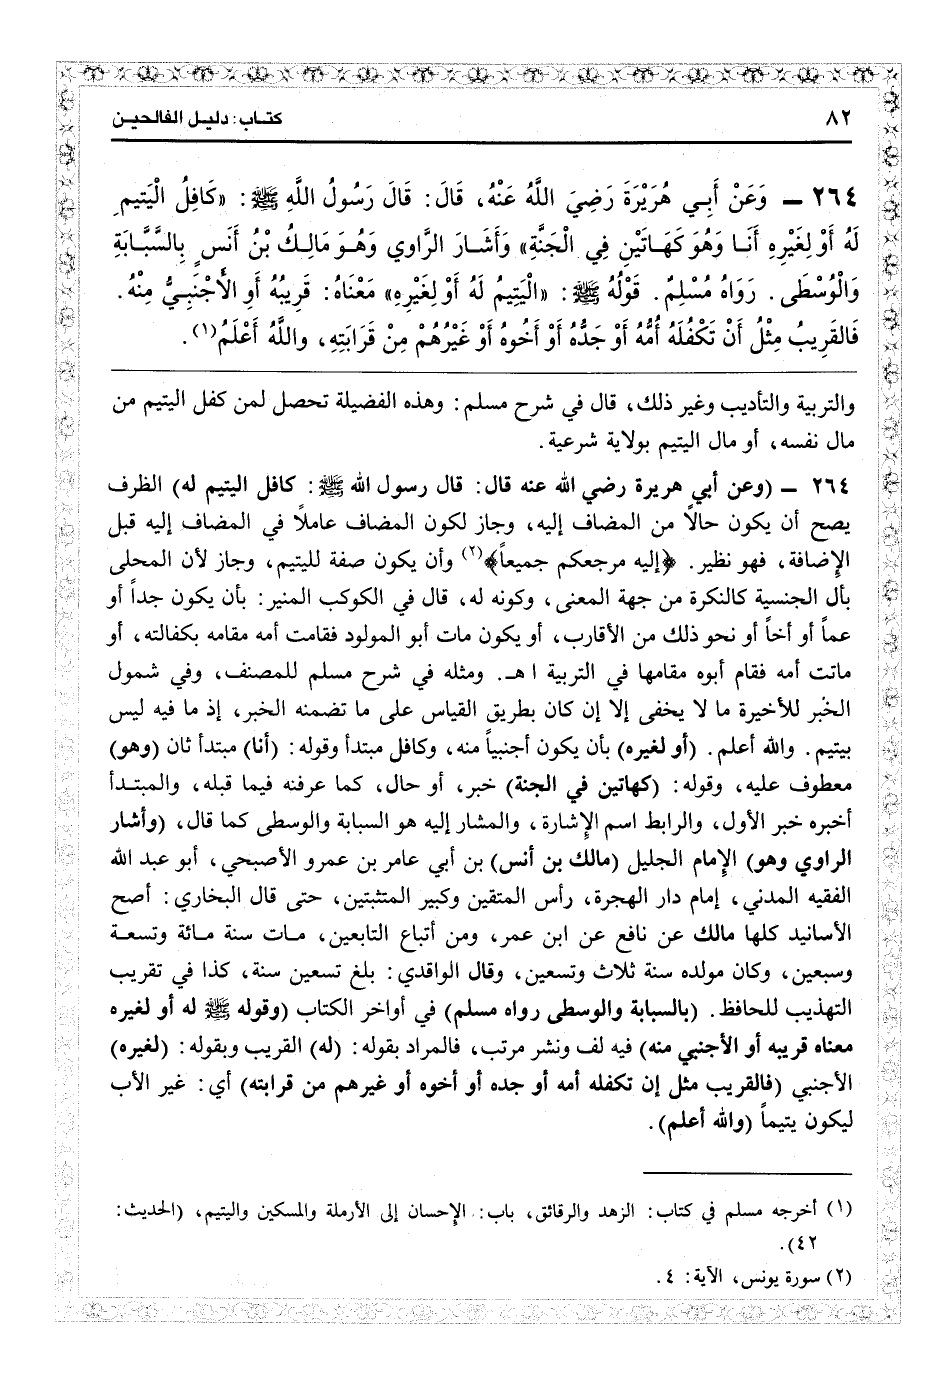 ٨٢
كتـاب: دليـل الفالحيـن
٢٦٤ ــ وَعَنْ أَبِـي هُرَيْرَةَ رَضِـيَ اللَّهُ عَنْهُ، قَالَ: قَالَ رَسُولُ اللَّهِ ﷺ: «كَافِلُ الْيَتِيمِ
لَهُ أَوْ لِغَيْرِهِ أَنَـا وَهُوَ كَهَاتَيْنِ فِي الْجَنَّةِ» وَأَشَـارَ الرَّاوِي وَهُـوَ مَالِـكُ بْنُ أَنَسٍ بِالسَّبَّابَةِ
وَالْوُسْطَى. رَوَاهُ مُسْلِمٌ. قَوْلُهُ ﷺ: «الْيَتِيمُ لَهُ أَوْ لِغَيْرِهِ» مَعْنَاهُ: قَرِيبُهُ أَوِ الأَجْنَبِـيُّ مِنْهُ.
فَالقَرِيبُ مِثْلُ أَنْ تَكْفُلَهُ أُمُّهُ أَوْ جَدُّهُ أَوْ أَخُوهُ أَوْ غَيْرُهُمْ مِنْ قَرَابَتِهِ، واللَّهُ أَعْلَمُ(١).
والتربية والتأديب وغير ذلك، قال في شرح مسلم: وهذه الفضيلة تحصل لمن كفل اليتيم من
مال نفسه، أو مال اليتيم بولاية شرعية.
٢٦٤ ــ (وعن أبي هريرة رضي الله عنه قال: قال رسول الله ﷺ: كافل اليتيم له) الظرف
يصح أن يكون حالاً من المضاف إليه، وجاز لكون المضاف عاملاً في المضاف إليه قبل
الإضافة، فهو نظير. ﴿إليه مرجعكم جميعاً﴾(٢) وأن يكون صفة لليتيم، وجاز لأن المحلى
بأل الجنسية كالنكرة من جهة المعنى، وكونه له، قال في الكوكب المنير: بأن يكون جداً أو
عماً أو أخاً أو نحو ذلك من الأقارب، أو يكون مات أبو المولود فقامت أمه مقامه بكفالته، أو
ماتت أمه فقام أبوه مقامها في التربية ا هـ. ومثله في شرح مسلم للمصنف، وفي شمول
الخبر للأخيرة ما لا يخفى إلا إن كان بطريق القياس على ما تضمنه الخبر، إذ ما فيه ليس
بيتيم. والله أعلم. (أو لغيره) بأن يكون أجنبياً منه، وكافل مبتدأ وقوله: (أنا) مبتدأ ثان (وهو)
معطوف عليه، وقوله: (كهاتين في الجنة) خبر، أو حال، كما عرفته فيما قبله، والمبتـدأ
أخبره خبر الأول، والرابط اسم الإشارة، والمشار إليه هو السبابة والوسطى كما قال، (وأشار
الراوي وهو) الإمام الجليل (مالك بن أنس) بن أبي عامر بن عمرو الأصبحي، أبو عبد الله
الفقيه المدني، إمام دار الهجرة، رأس المتقين وكبير المتثبتين، حتى قال البخاري: أصح
الأسانيد كلها مالك عن نافع عن ابن عمر، ومن أتباع التابعين، مـات سنة مـائة وتسعـة
وسبعين، وكان مولده سنة ثلاث وتسعين، وقال الواقدي: بلغ تسعين سنة، كذا في تقريب
التهذيب للحافظ. (بالسبابة والوسطى رواه مسلم) في أواخر الكتاب (وقوله ﷺ له أو لغيره
معناه قريبه أو الأجنبي منه) فيه لف ونشر مرتب، فالمراد بقوله: (له) القريب وبقوله: (لغيره)
الأجنبي (فالقريب مثل إن تكفله أمه أو جده أو أخوه أو غيرهم من قرابته) أي: غير الأب
ليكون يتيماً (والله أعلم).
(١) أخرجه مسلم في كتاب: الزهد والرقائق، باب: الإحسان إلى الأرملة والمسكين واليتيم، (الحديث:
٤٢).
(٢) سورة يونس، الآية: ٤.